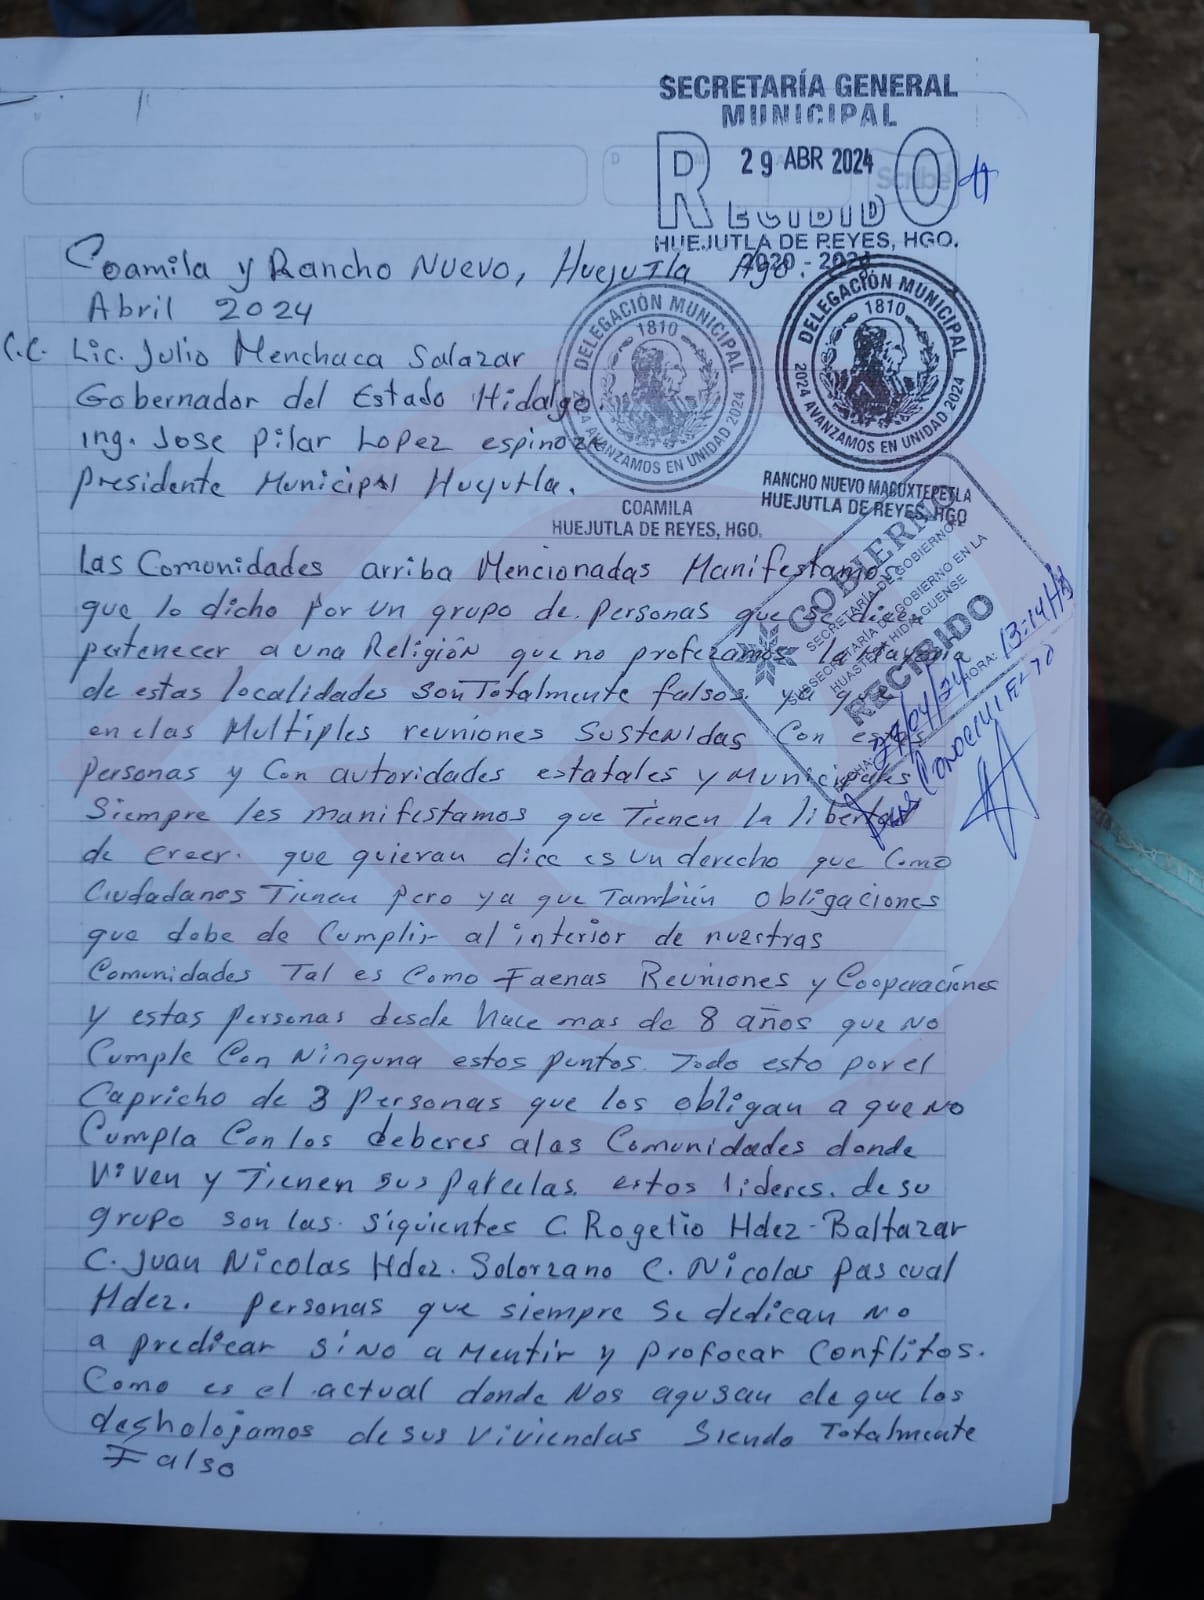 SECRETARÍA GENERAL
MUNICIPAL
RECIBIDO
29 ABR 2024
Scribe
HUEJUTLA DE REYES, HGO.
2020 - 2024
Coamila y Rancho Nuevo, Huejutla Ago.
Abril 2024
C.C. Lic. Julio Menchaca Salazar
Gobernador del Estado Hidalgo.
ing. Jose Pilar Lopez espinoza
presidente Municipal Huejutla.
DELEGACIÓN MUNICIPAL
1810
2024 AVANZAMOS EN UNIDAD 2024
COAMILA
HUEJUTLA DE REYES, HGO.
DELEGACIÓN MUNICIPAL
1810
2024 AVANZAMOS EN UNIDAD 2024
RANCHO NUEVO MACUXTEPETLA
HUEJUTLA DE REYES, HGO
GOBIERNO
SECRETARÍA DE GOBIERNO
SUBSECRETARÍA DE GOBIERNO EN LA
HUASTECA HIDALGUENSE
RECIBIDO
FECHA: 29/04/24 HORA: 13:14 Hs
Conocimiento
Las Comunidades arriba Mencionadas Manifestamos
que lo dicho por un grupo de personas que se dice
pertenecer a una Religión que no profezamos la mayoria
de estas localidades son Totalmente falsos. ya que
en las Multiples reuniones Sustenidas Con estas
personas y Con autoridades estatales y municipales
Siempre les manifestamos que Tienen la libertad
de creer. que quieran dice es un derecho que Como
Ciudadanos Tienen pero ya que También obligaciones
que debe de Cumplir al interior de nuestras
Comunidades Tal es Como Faenas Reuniones y Cooperaciones
y estas personas desde hace mas de 8 años que No
Cumple Con Ninguna estos puntos. Todo esto por el
Capricho de 3 personas que los obligan a que No
Cumpla Con los deberes a las Comunidades donde
viven y Tienen sus parcelas. estos lideres. de su
grupo son las. siguientes C. Rogelio Hdez-Baltazar
C. Juan Nicolas Hdez. Solorzano C. Nicolas Pascual
Hdez. personas que siempre se dedican No
a predicar sino a mentir y profocar Conflitos.
Como es el actual donde Nos agusan de que los
desholojamos de sus viviendas Siendo Totalmente
Falso